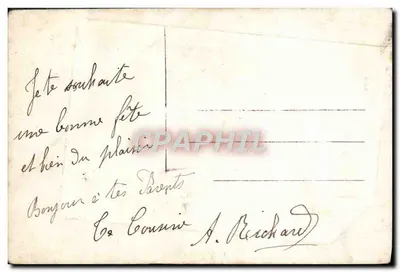 Je te souhaite
une bonne fête
et bien du plaisir
Bonjour à tes Parents
Ta Cousine A. Richard
CPARAMA